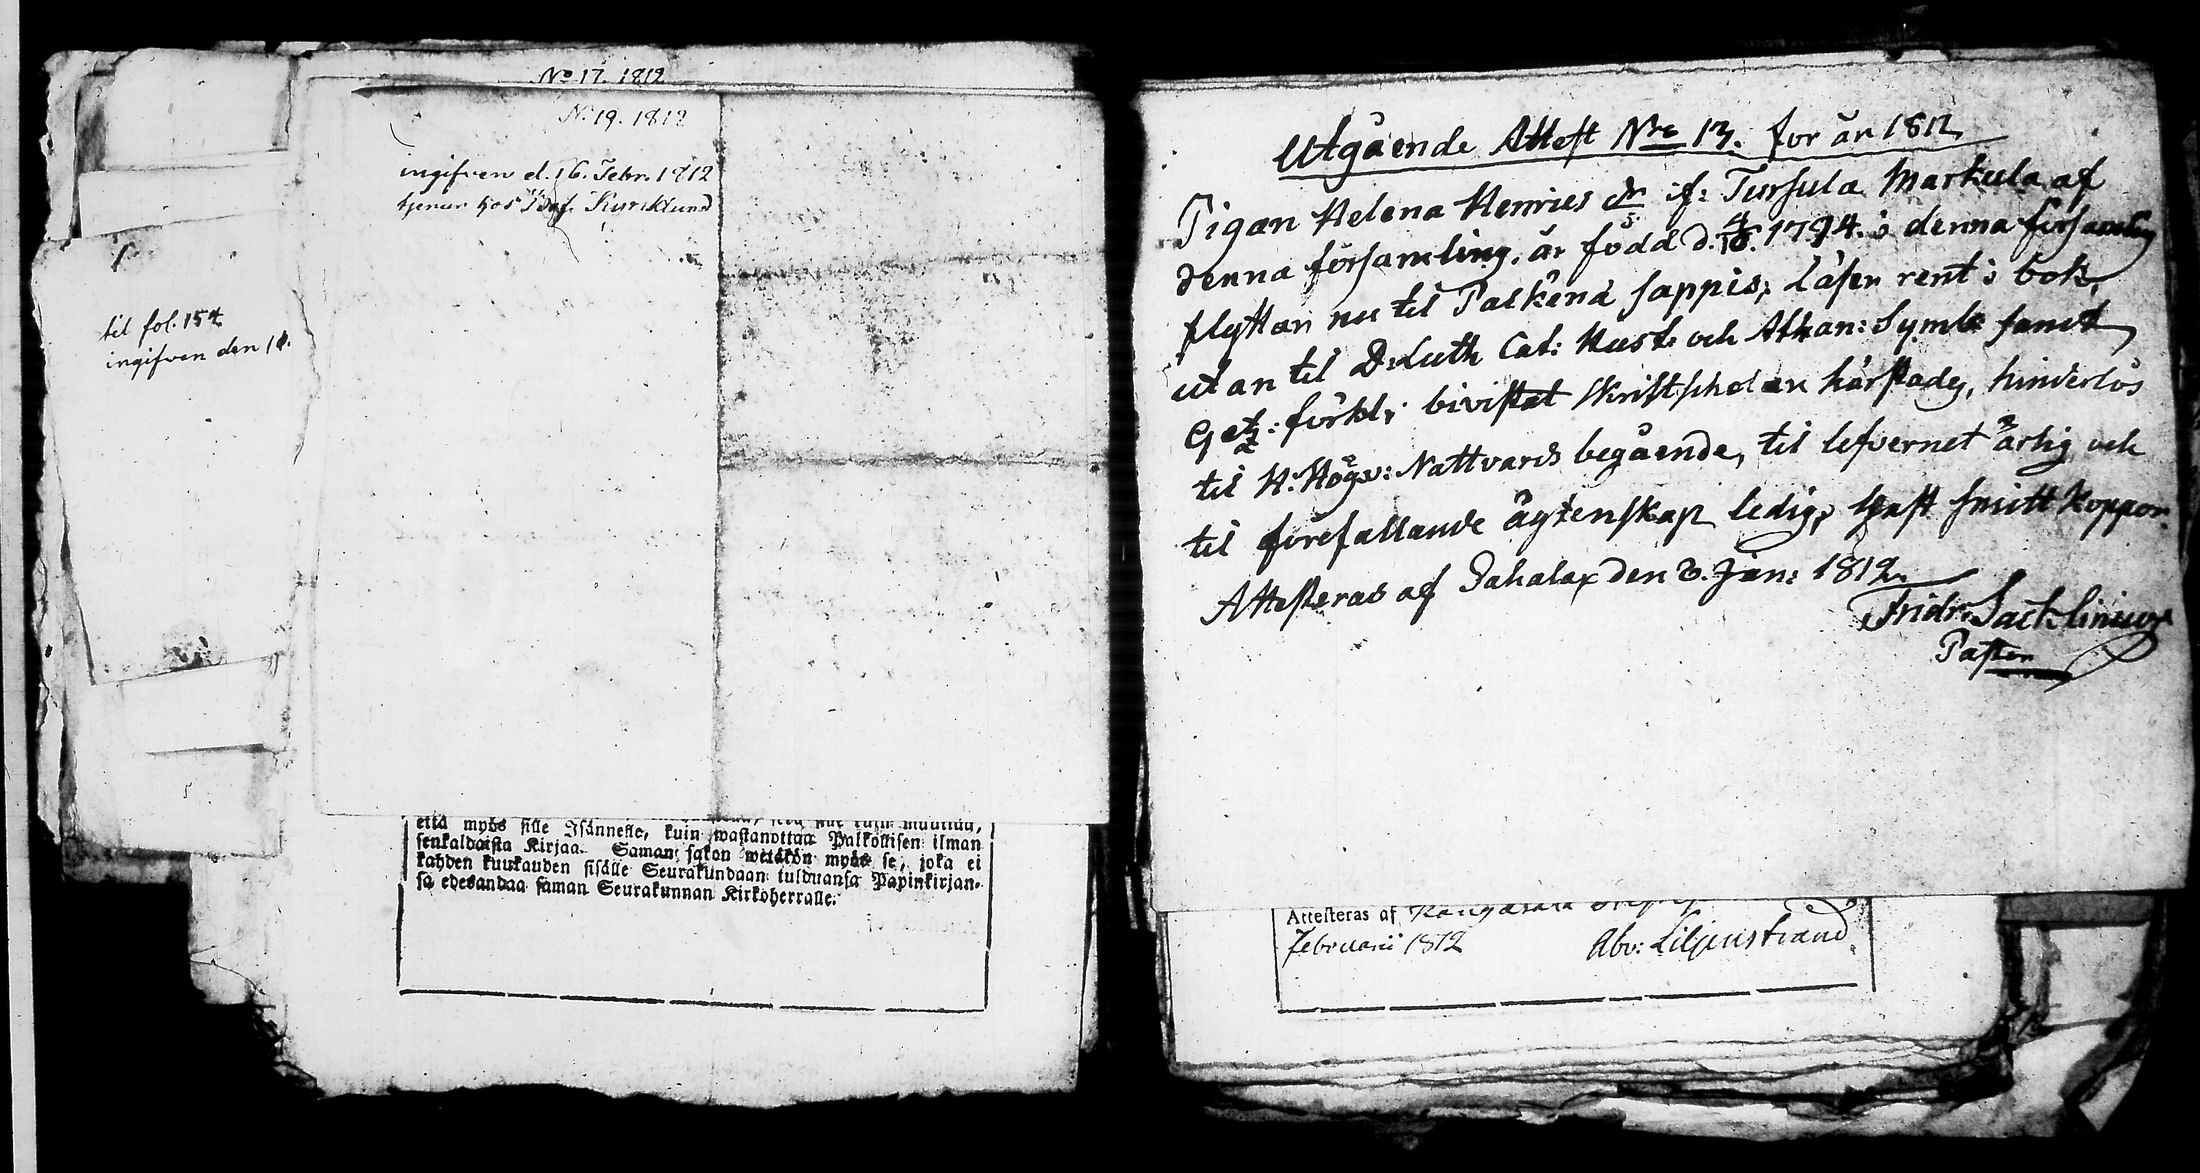 No 17. 1812
N. 19. 1812
ingifven d. 16. Febr. 1812
tjenar hos
til fol. 154
ingifven den 18.
että myös sille Isännelle, kuin wastanottaa Palkollisen ilman
senkaldaista Kirjaa. Saman sakon wetäkön myös se, joka ei
kahden kuukauden sisälle Seurakundaan tulduansa Papinkirjan-
sa edesandaa saman Seurakunnan Kirkoherralle.
Utgående Attest Nro 13. for år 1812
Pigan Helena Henrics dr if: Tursula Markula af
denna församling, är född d. 1794. i denna församling
flyttar nu til Palkéná sappis; läser rent i bok,
utan til D: Luth Cat: Hust: och Athan: Symb: samt
förkl; bivistat Skriftskolan härstädes, hinderlös
til H. Högv: Nattvards begående, til lefvernet ärlig och
til förefallande ägtenskap ledig, haft smittkoppor.
Attesteras af Sahalax den 8. Jan: 1812.
Fridr:
Pastor
Attesteras af Kangasala
Februarii 1812 Abr: Liljenstrand